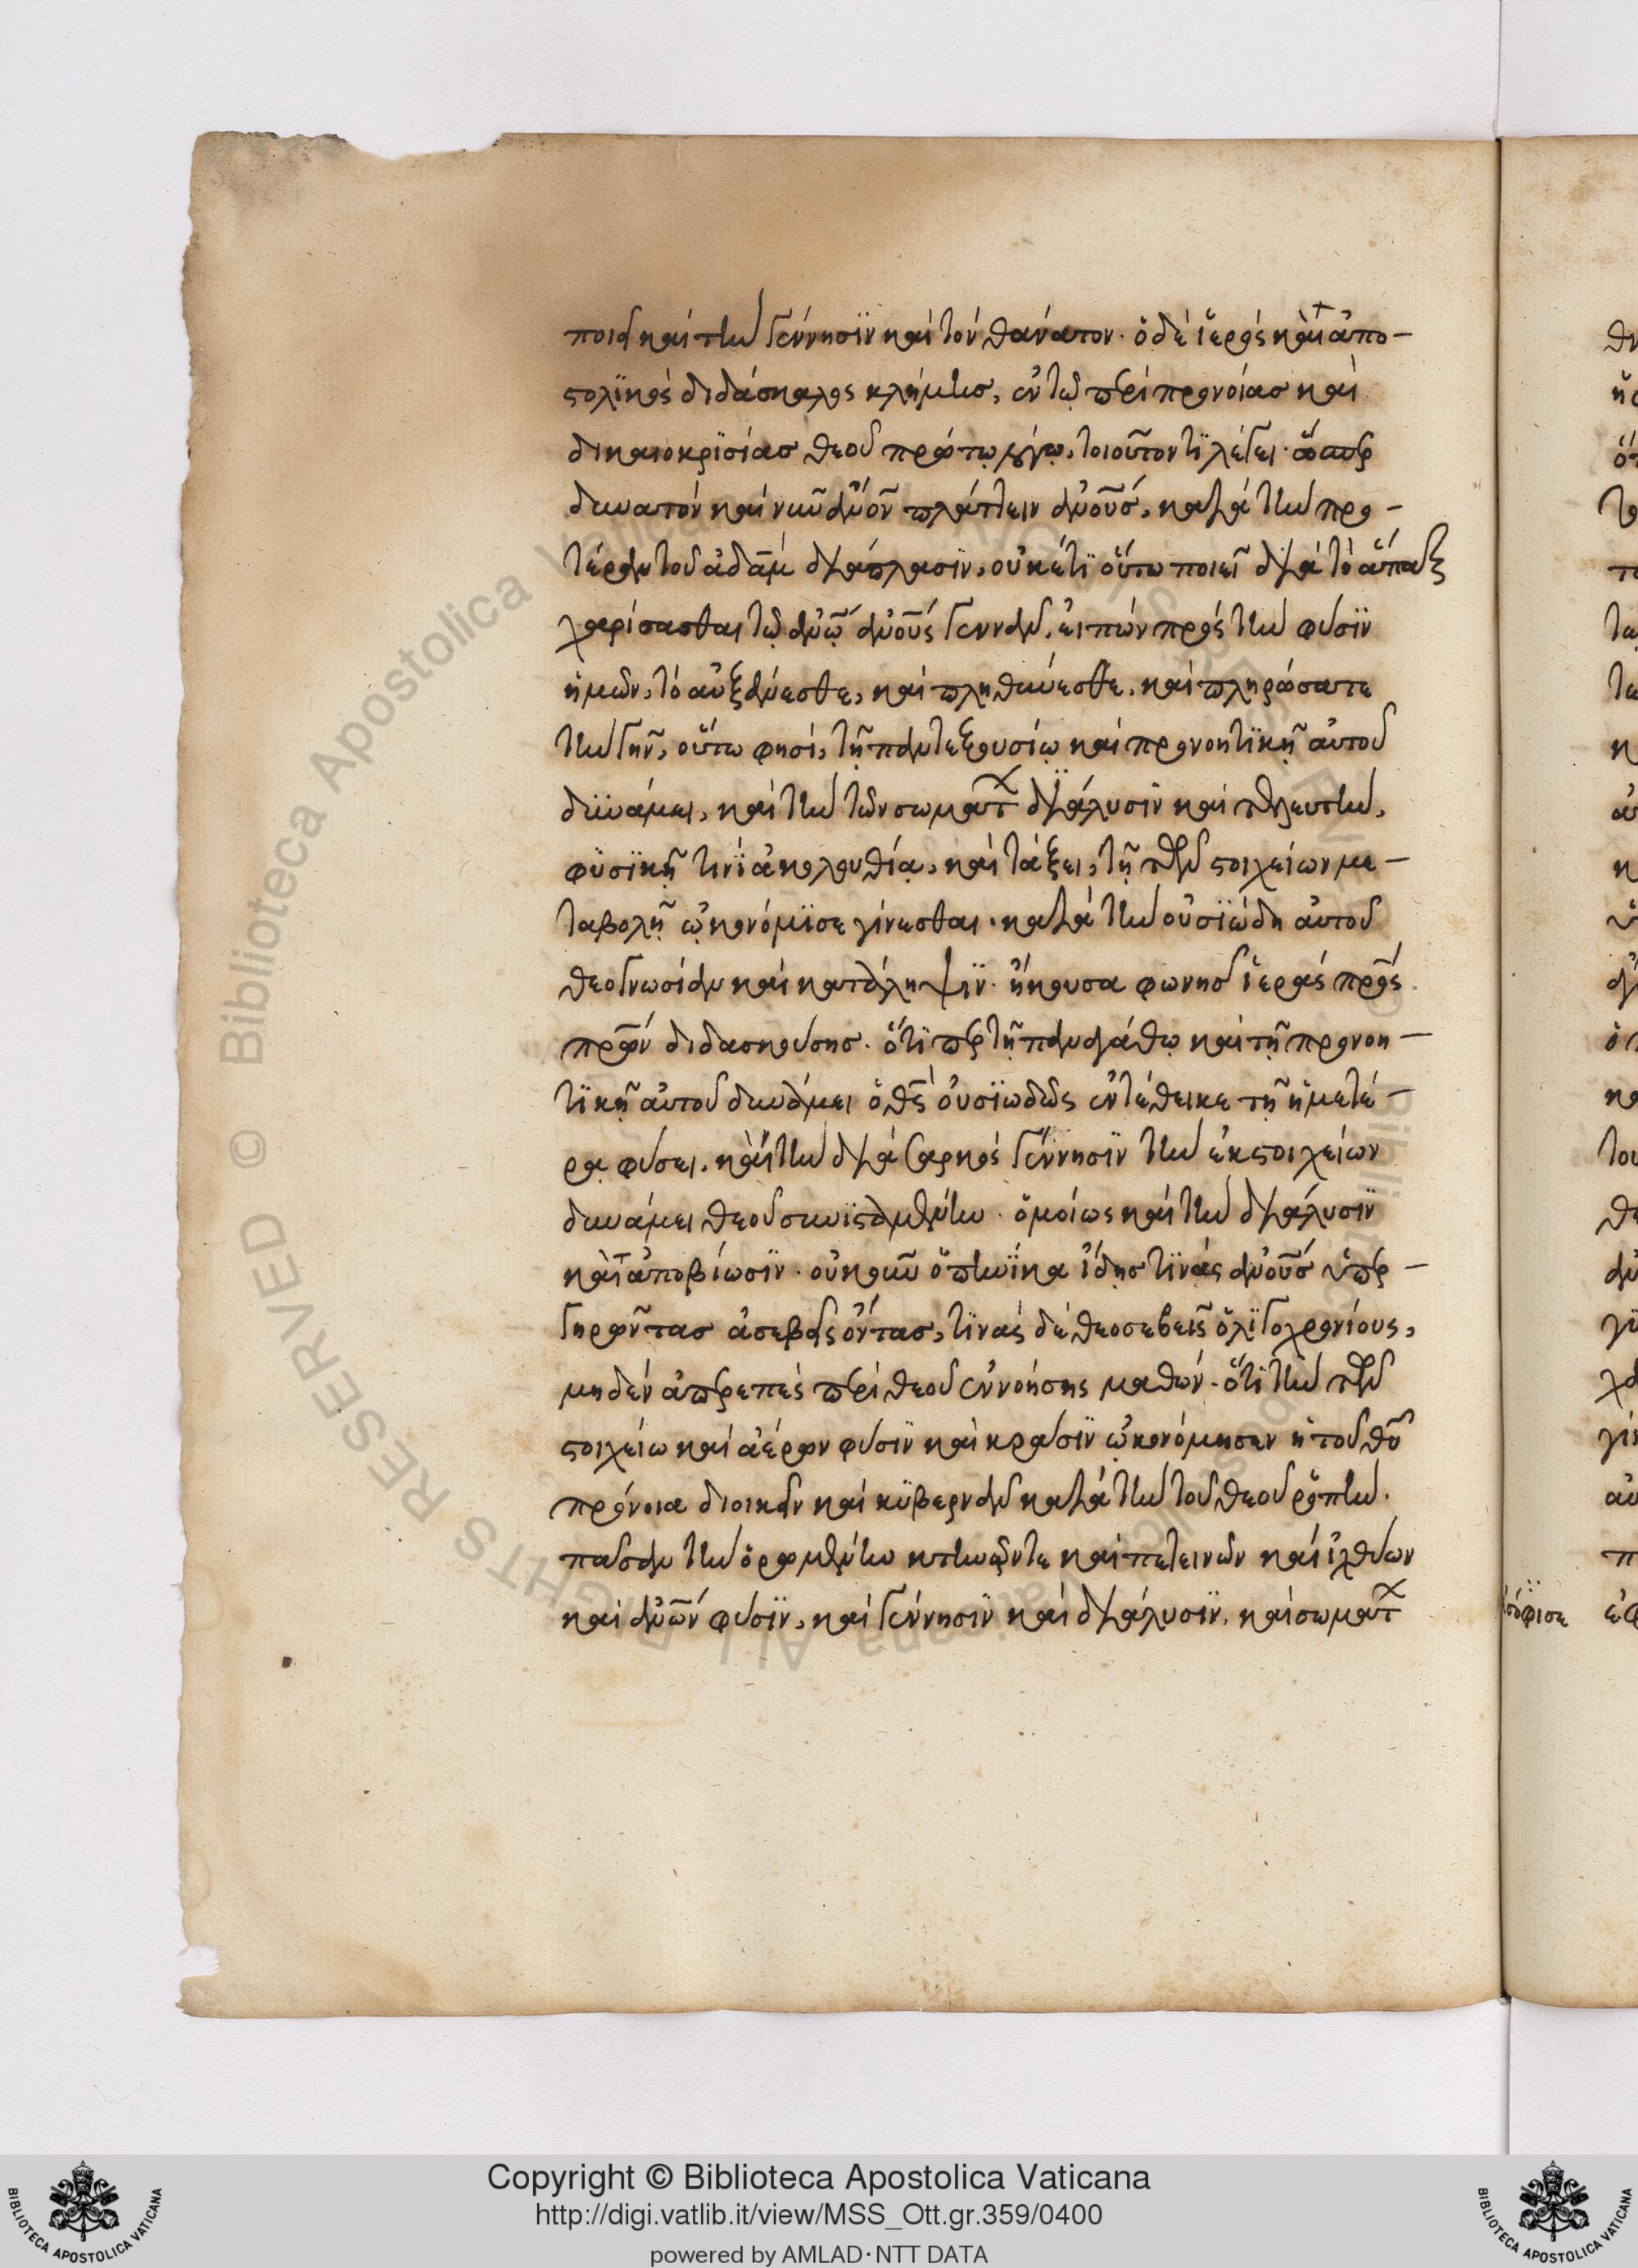 ποιεῖ καὶ τὴν γέννησϊν καὶ τὸν θάνατον· ὁ δὲ ἱερὸς καὶ ἀπο-
στολϊκὸς διδάσκαλος κλήμης, ἐν τῷ περὶ προνοίας καὶ
δικαιοκρϊσίας θεοῦ πρώτῳ λόγῳ, τοιοῦτον τϊ λέγει· ὥσπερ
δυνατὸν καὶ νῦν πλάττειν ἀνοῦσ, κατὰ τὴν προ-
τέραν τοῦ ἀδὰμ διάπλασϊν, οὐκέτϊ οὕτω ποιεῖ διὰ τὸ ἅπαξ
χαρίσασθαι τῷ ἀνῷ ἀνοὺς γεννᾶν, εἰπὼν πρὸς τὴν φύσϊν
ἡμῶν, τὸ αὐξάνεσθε, καὶ πληθύνεσθε, καὶ πληρώσατε
τὴν γῆν, οὕτω φησὶ, τῇ παντεξουσίῳ καὶ προνοητϊκῇ αὐτοῦ
δϋνάμει, καὶ τὴν τῶν σωμάτ διάλυσϊν καὶ τελευτὴν,
φϋσϊκῇ τινϊ ἀκολουθίᾳ, καὶ τάξει, τῇ τῶν στοιχείων με-
ταβολῇ ᾠκονόμϊσε γίνεσθαι· κατὰ τὴν οὐσϊώδη αὐτοῦ
θεογνωσίαν καὶ κατάληψϊν· ἤκουσα φωνῆς ἱερᾶς πρὸς
πρῶν διδασκούσης· ὅτϊ περ τῇ παναγάθῳ καὶ τῇ προνοη-
τϊκῇ αὐτοῦ δυνάμει ὁ θς οὐσϊωδῶς ἐντέθεικε τῇ ἡμετέ-
ρᾳ φύσει, καὶ τὴν διὰ σαρκὸς γέννησϊν τὴν ἐκ στοιχείων
δυνάμει θεοῦ συνϊσταμένην· ὁμοίως καὶ τὴν διάλυσϊν
καὶ ἀποβίωσϊν· οὐκοῦν ὁπηνίκα ἴδῃς τϊνὰς ἀνοὺσ ὑπερ-
γηρῶντας ἀσεβεῖς ὄντας, τϊνὰς δὲ θεοσεβεῖς ὀλϊγοχρονίους,
μηδὲν ἀπρεπὲς περὶ θεοῦ ἐννοήσῃς μαθών· ὅτϊ τὴν τῶν
στοιχείω καὶ ἀέρων φύσιν καὶ κρᾶσϊν ᾠκονόμησεν ἡ τοῦ θυ
πρόνοια διοικεῖν καὶ κϋβερνᾶν κατὰ τὴν τοῦ θεοῦ ῥοπὴν.
πᾶσαν τὴν ὁρωμένην κτηνῶν τε καὶ πετεινῶν καὶ ἰχθύων
καὶ ἀνῶν φύσϊν, καὶ γέννησϊν καὶ διάλυσϊν, καὶ σωμάτ
Copyright © Biblioteca Apostolica Vaticana
http://digi.vatlib.it/view/MSS_Ott.gr.359/0400
powered by AMLAD · NTT DATA